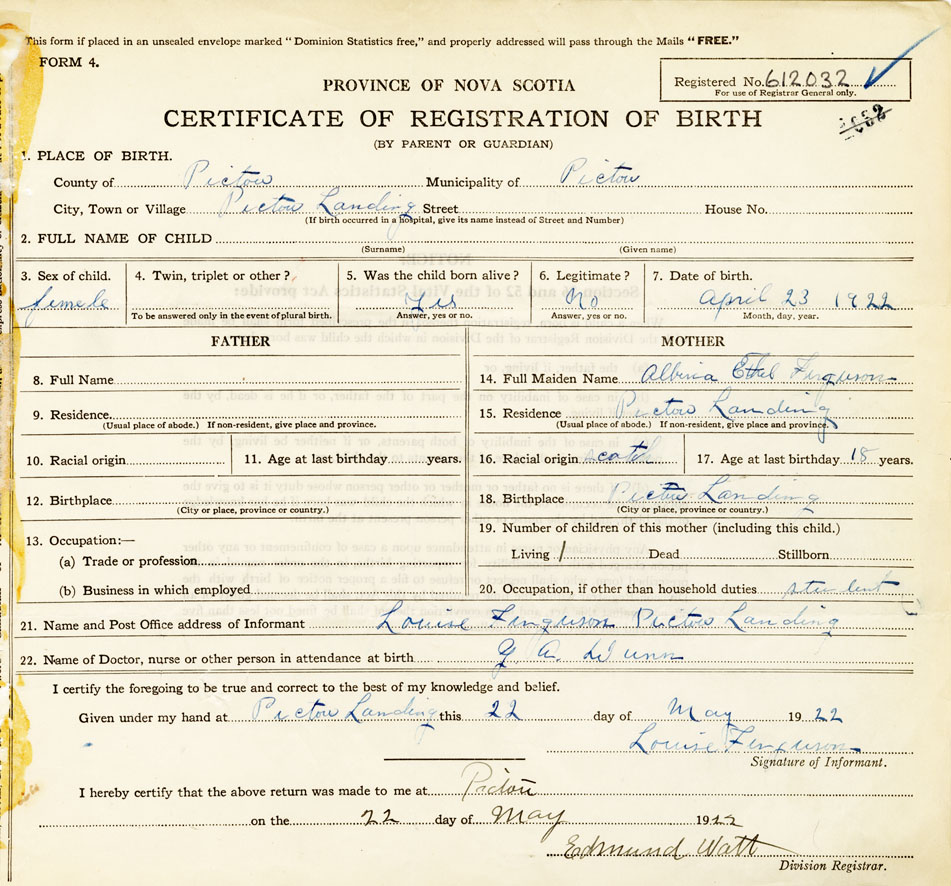 This form if placed in an unsealed envelope marked "Dominion Statistics free," and properly addressed will pass through the Mails "FREE."
FORM 4.
Registered No. 612032
For use of Registrar General only.
PROVINCE OF NOVA SCOTIA
CERTIFICATE OF REGISTRATION OF BIRTH
(BY PARENT OR GUARDIAN)
1. PLACE OF BIRTH.
County of Pictou Municipality of Pictou
City, Town or Village Pictou Landing Street House No.
(If birth occurred in a hospital, give its name instead of Street and Number)
2. FULL NAME OF CHILD
(Surname) (Given name)
3. Sex of child. 4. Twin, triplet or other? 5. Was the child born alive? 6. Legitimate? 7. Date of birth.
female Yes No April 23 1922
To be answered only in the event of plural birth. Answer, yes or no. Answer, yes or no. Month, day, year.
FATHER MOTHER
8. Full Name 14. Full Maiden Name Ethel Ferguson
9. Residence 15. Residence Pictou Landing
(Usual place of abode.) If non-resident, give place and province. (Usual place of abode.) If non-resident, give place and province.
10. Racial origin 11. Age at last birthday years. 16. Racial origin scotch 17. Age at last birthday 18 years.
12. Birthplace 18. Birthplace Pictou Landing
(City or place, province or country.) (City or place, province or country.)
13. Occupation:— 19. Number of children of this mother (including this child.)
(a) Trade or profession Living 1 Dead Stillborn
(b) Business in which employed 20. Occupation, if other than household duties student
21. Name and Post Office address of Informant Louise Ferguson Pictou Landing
22. Name of Doctor, nurse or other person in attendance at birth A. Dunn
I certify the foregoing to be true and correct to the best of my knowledge and belief.
Given under my hand at Pictou Landing this 22 day of May 1922
Louise Ferguson
Signature of Informant.
I hereby certify that the above return was made to me at Pictou
on the 22 day of May 1922
Edmund Watt
Division Registrar.